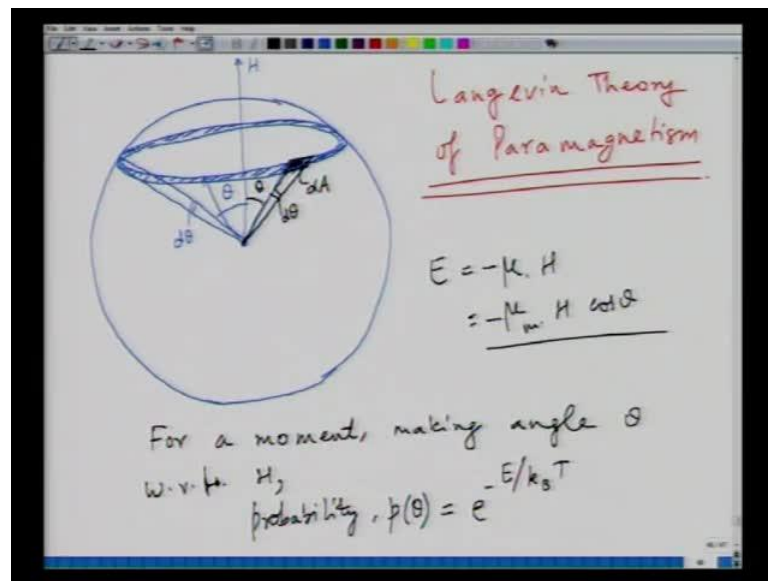 H
Langevin Theory
of Paramagnetism
θ
θ
dA
dθ
dθ
E = -μ. H
= -μm. H cosθ
For a moment, making angle θ
w.r.to. H,
probability, p(θ) = e^-E/kBT